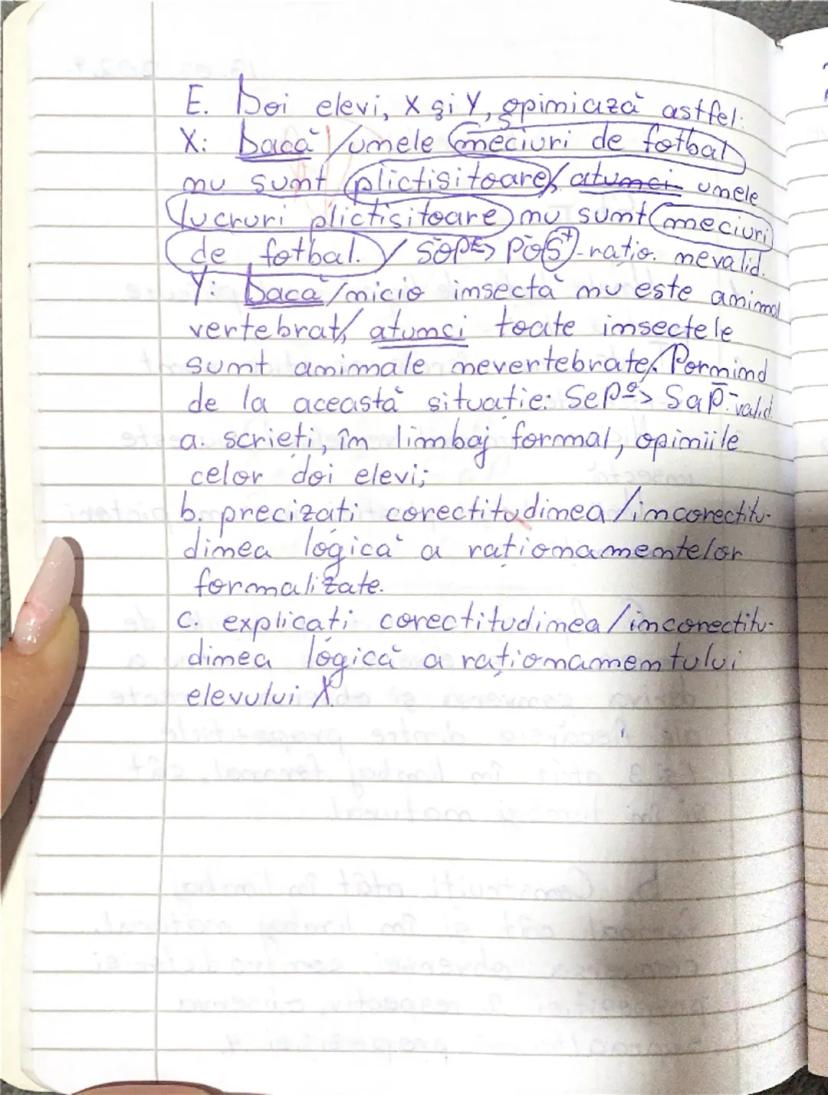 E. Doi elevi, X și Y, opiniază astfel:
X: Dacă /unele meciuri de fotbal
nu sunt plictisitoare/ atunci unele
lucruri plictisitoare nu sunt meciuri
de fotbal. / SoP c> PoS+ - rațio. nevalid.
Y: Dacă/nicio insectă nu este animal
vertebrat/ atunci toate insectele
sunt animale nevertebrate. Pornind
de la această situatie: SeP o> SaP̄ - valid
a. scrieti, în limbaj formal, opiniile
celor doi elevi;
b. precizati corectitudinea/incorectitu-
dinea logică a raționamentelor
formalizate.
c. explicati corectitudinea/incorectitu-
dinea logică a raționamentului
elevului X.